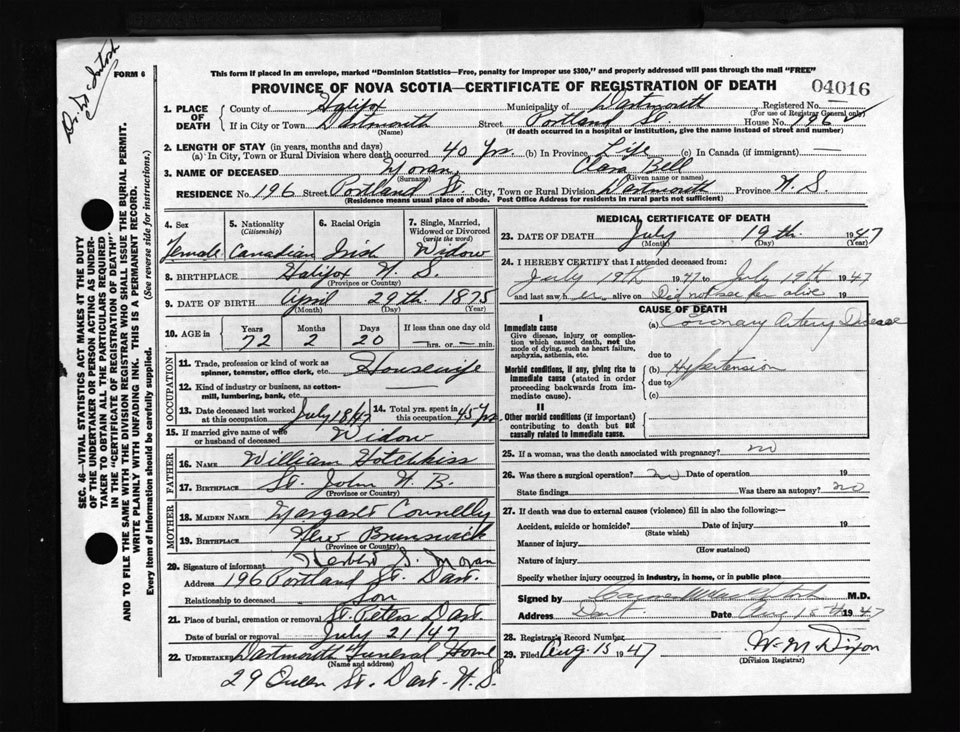 Dr. McIntosh
FORM 6
This form if placed in an envelope, marked "Dominion Statistics—Free, penalty for improper use $300," and properly addressed will pass through the mail "FREE"
PROVINCE OF NOVA SCOTIA—CERTIFICATE OF REGISTRATION OF DEATH
04016
1. PLACE OF DEATH County of Halifax Municipality of Dartmouth Registered No. —
(For use of Registrar General only)
If in City or Town Dartmouth Street Portland St House No. 196
(Name) (If death occurred in a hospital or institution, give the name instead of street and number)
2. LENGTH OF STAY (in years, months and days)
(a) In City, Town or Rural Division where death occurred 40 Yrs. (b) In Province Life (c) In Canada (if immigrant) —
3. NAME OF DECEASED Moran Clara Bell
(Surname) (Given name or names)
RESIDENCE No. 196 Street Portland St. City, Town or Rural Division Dartmouth Province N.S.
(Residence means usual place of abode. Post Office Address for residents in rural parts not sufficient)
4. Sex 5. Nationality (Citizenship) 6. Racial Origin 7. Single, Married, Widowed or Divorced (write the word)
Female Canadian Irish Widow
8. BIRTHPLACE Halifax N.S.
(Province or Country)
9. DATE OF BIRTH April 29th. 1875
(Month) (Day) (Year)
10. AGE in Years Months Days If less than one day
72 2 20 —hrs. or —min.
OCCUPATION
11. Trade, profession or kind of work as spinner, teamster, office clerk, etc. Housewife
12. Kind of industry or business, as cotton-mill, lumbering, bank, etc. —
13. Date deceased last worked at this occupation July 1847 14. Total yrs. spent in this occupation 45 Yrs.
15. If married give name of wife or husband of deceased Widow
FATHER
16. NAME William Hotchkiss
17. BIRTHPLACE St. John N.B.
(Province or Country)
MOTHER
18. MAIDEN NAME Margaret Connelly
19. BIRTHPLACE New Brunswick
(Province or Country)
20. Signature of informant Herbert J. Moran
Address 196 Portland St. Dart.
Relationship to deceased Son
21. Place of burial, cremation or removal St. Peters Dart.
Date of burial or removal July 21/47
22. Undertaker Dartmouth Funeral Home
(Name and address)
29 Queen St. Dart. N.S.
MEDICAL CERTIFICATE OF DEATH
23. DATE OF DEATH July 19th. 1947
(Month) (Day) (Year)
24. I HEREBY CERTIFY that I attended deceased from:
July 19th 1947 to July 19th 1947
and last saw her alive on Did not see her alive 19
CAUSE OF DEATH
I
Immediate cause (a) Coronary Artery Disease
Give disease, injury or complication which caused death, not the mode of dying, such as heart failure, asphyxia, asthenia, etc.
due to
Morbid conditions, if any, giving rise to immediate cause (stated in order proceeding backwards from immediate cause).
(b) Hypertension
due to
(c)
II
Other morbid conditions (if important) contributing to death but not causally related to immediate cause.
25. If a woman, was the death associated with pregnancy? no
26. Was there a surgical operation? no Date of operation 19
State findings Was there an autopsy? no
27. If death was due to external causes (violence) fill in also the following:—
Accident, suicide or homicide? Date of injury 19
(State which)
Manner of injury
(How sustained)
Nature of injury
Specify whether injury occurred in industry, in home, or in public place
Signed by M.D.
Address Dart. Date Aug 15th 1947
28. Registrar's Record Number
29. Filed Aug. 15 1947 W. M. Dixon
(Division Registrar)
SEC. 46—VITAL STATISTICS ACT MAKES IT THE DUTY
OF THE UNDERTAKER OR PERSON ACTING AS UNDER-
TAKER TO OBTAIN ALL THE PARTICULARS REQUIRED
IN THE "CERTIFICATE OF REGISTRATION OF DEATH"
AND TO FILE THE SAME WITH THE DIVISION REGISTRAR WHO SHALL ISSUE THE BURIAL PERMIT.
WRITE PLAINLY WITH UNFADING INK. THIS IS A PERMANENT RECORD.
Every item of Information should be carefully supplied. (See reverse side for instructions.)